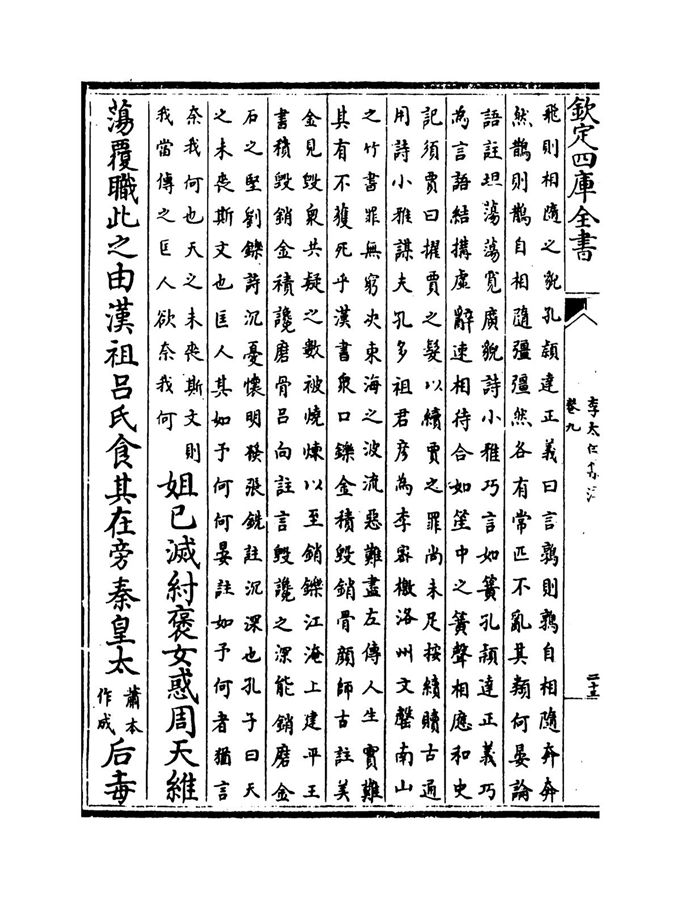 欽定四庫全書
李太白集注
卷九
二十三
飛則相隨之貌孔頴達正義曰言鶉則鶉自相隨奔奔
然鵲則鵲自相隨彊彊然各有常匹不亂其類何晏論
語註坦蕩蕩寛廣貌詩小雅巧言如簧孔頴達正義巧
為言語結搆虚辭速相待合如笙中之簧聲相應和史
記須賈曰擢賈之髮以續賈之罪尚未足按續贖古通
用詩小雅謀夫孔多祖君彦為李宻檄洛州文罄南山
之竹書罪無窮决東海之波流惡難盡左傳人生實難
其有不獲死乎漢書衆口鑠金積毁銷骨顔師古註美
金見毁衆共疑之數被燒煉以至銷鑠江淹上建平王
書積毁銷金積讒磨骨吕向註言毁讒之深能銷磨金
石之堅劉鑠詩沉憂懷明發張銑註沉深也孔子曰天
之未喪斯文也匡人其如予何何晏註如予何者猶言
奈我何也天之未喪斯文則
我當傳之匡人欲奈我何
妲已滅紂褒女惑周天維
蕩覆職此之由漢祖吕氏食其在旁秦皇太
蕭本
作成
后毒